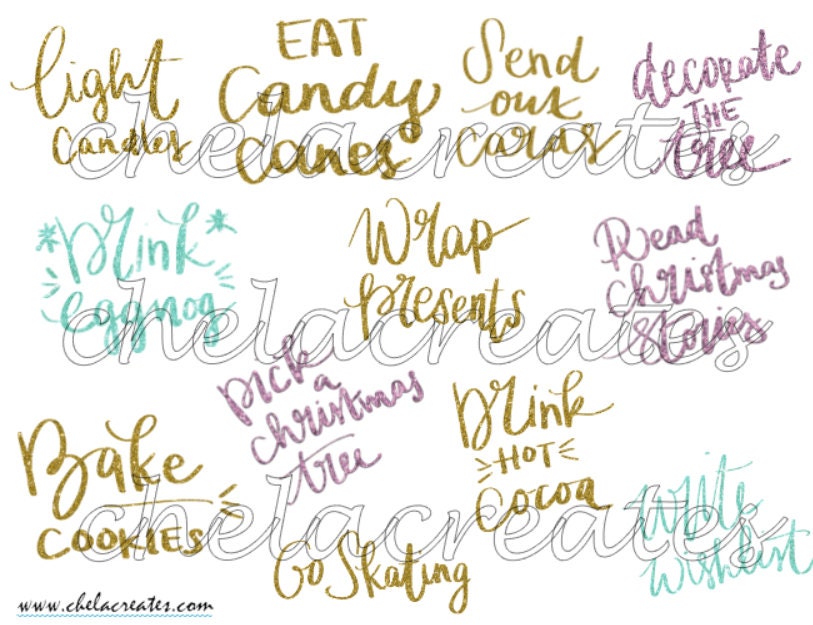 light
candles
EAT
Candy
Canes
Send
out
cards
decorate
THE
tree
chelacreates
Drink
eggnog
Wrap
presents
Read
christmas
stories
chelacreates
pick
a
christmas
tree
Bake
COOKIES
Drink
HOT
Cocoa
Write
wishlist
chelacreates
Go Skating
www.chelacreates.com